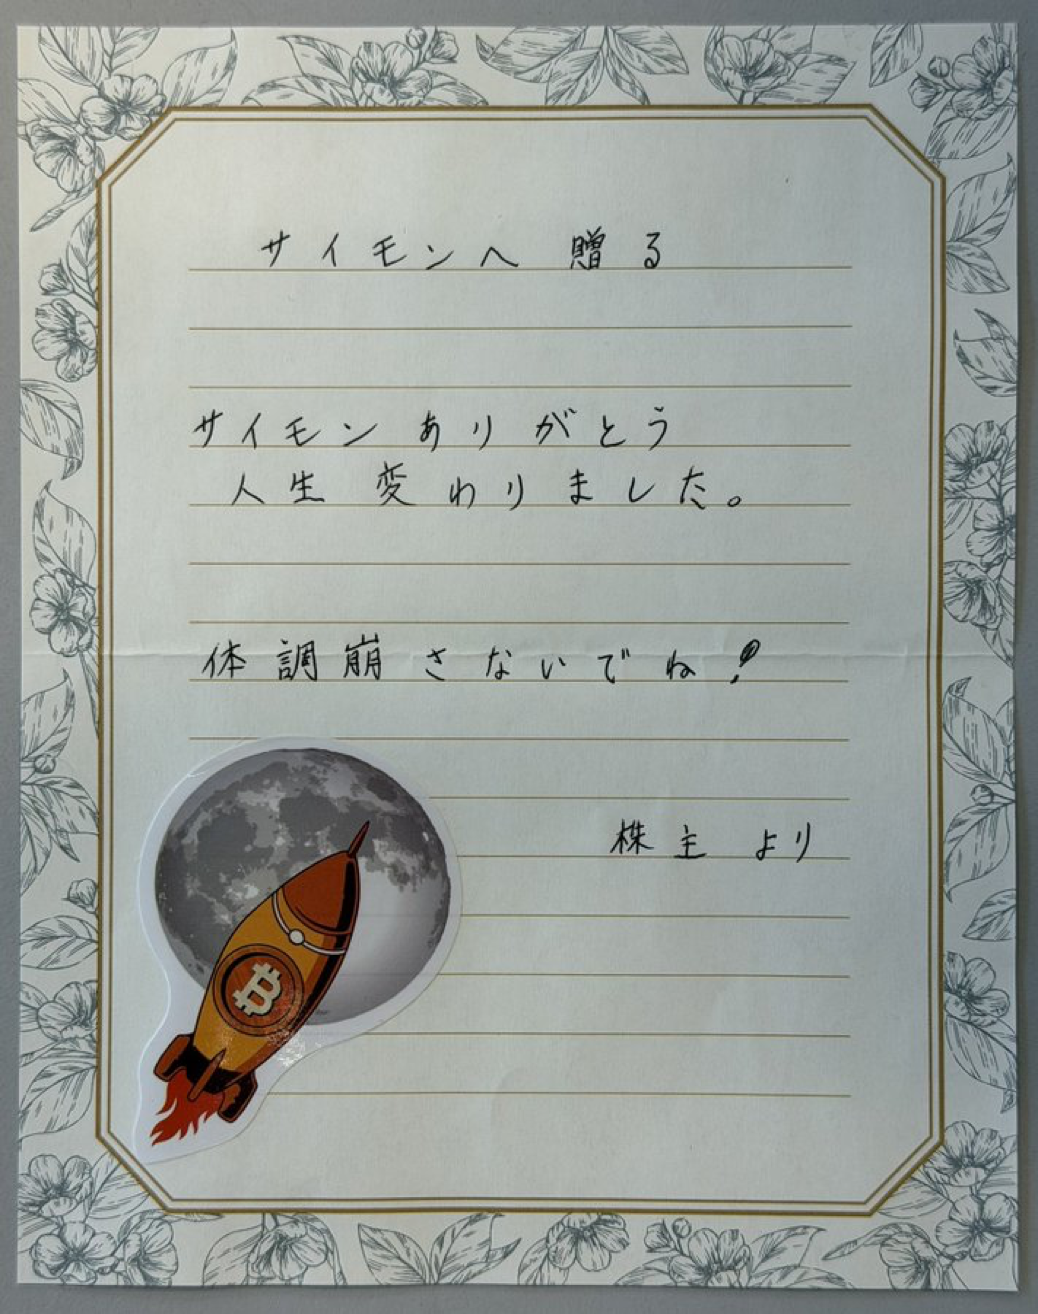 サイモンへ 贈る
サイモン ありがとう
人生 変わりました。
体調崩さないでね!
株主 より
₿